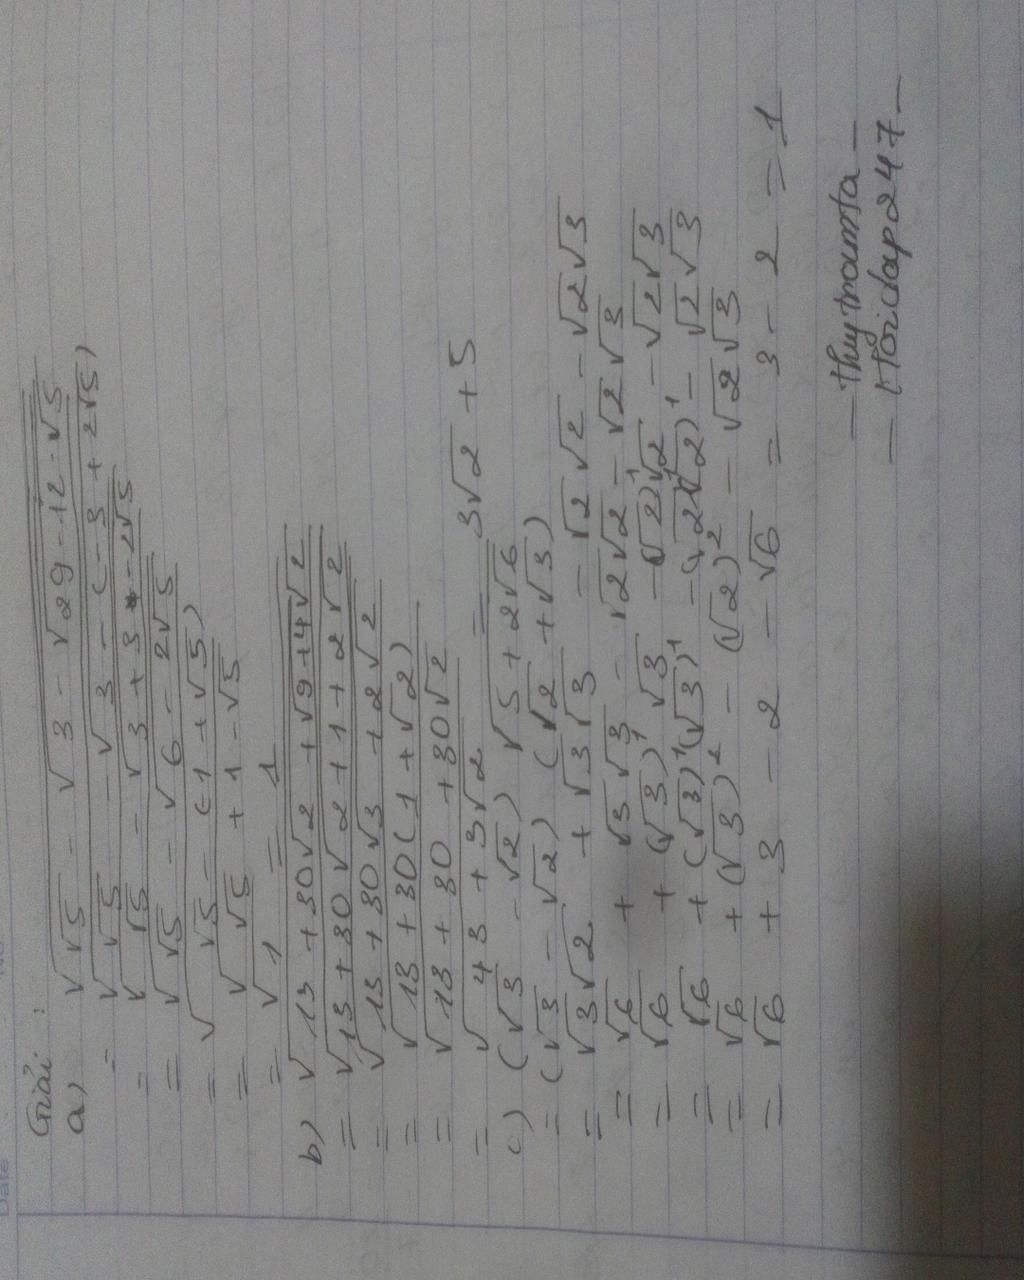 Date
No
Giải :
a) √√5 - √3 - √29 - 12 - √5
= √√5 - √3 - (-3 + 2√5)
= √√5 - √3 + 3 - 2√5
= √√5 - √6 - 2√5
= √√5 - (1 + √5)
= √√5 + 1 - √5
= √1 = 1
b) √13 + 30√2 + √9 + 4√2
= √13 + 30√2 + 1 + 2√2
= √13 + 30√3 + 2√2
= √13 + 30(1 + √2)
= √13 + 30 + 30√2
= √43 + 3√2 = 3√2 + 5
c) (√3 - √2) √5 + 2√6
= (√3 - √2) (√2 + √3)
= √3√2 + √3√3 - √2√2 - √2√3
= √6 + √3√3 - √2√2 - √2√3
= √6 + (√3)¹√3 - (√2)¹√2 - √2√3
= √6 + (√3)¹(√3)¹ - (√2)¹(√2)¹ - √2√3
= √6 + (√3)² - (√2)² - √2√3
= √6 + 3 - 2 - √6 = 3 - 2 = 1
- thuytramta -
- Hoidap247 -